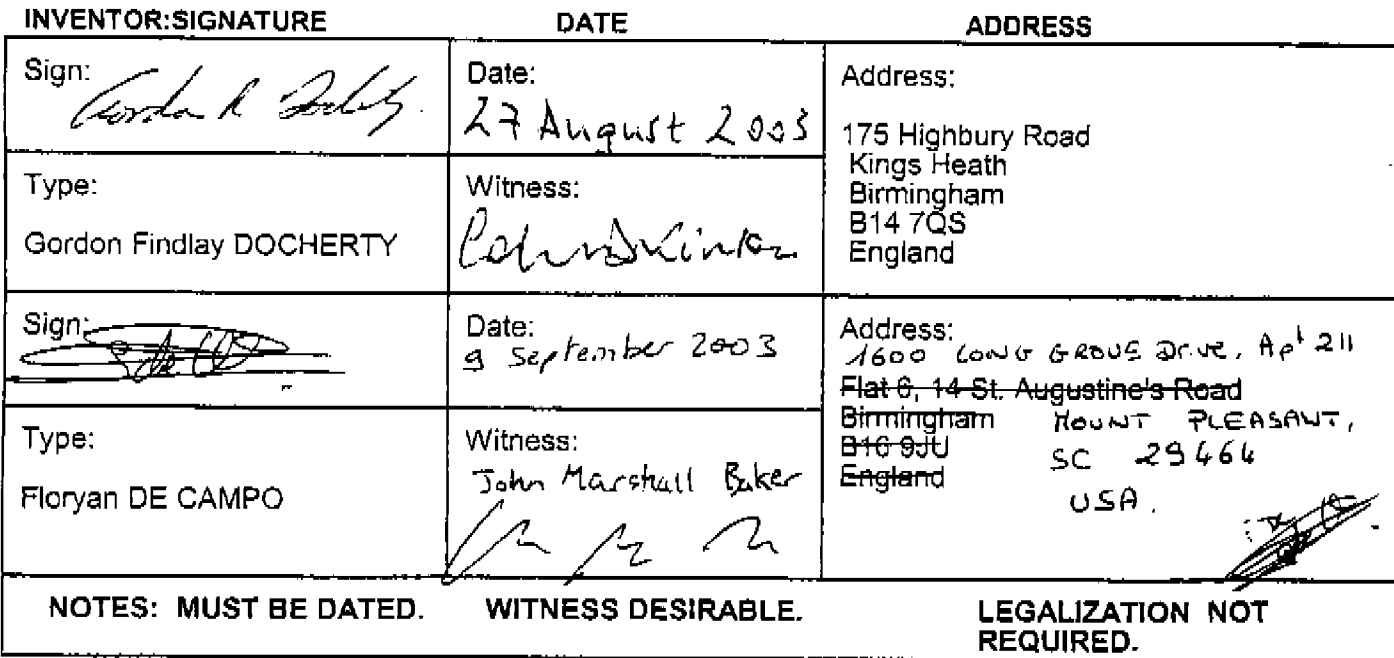 INVENTOR:SIGNATURE DATE ADDRESS
Sign:
Date:
27 August 2003
Address:
175 Highbury Road
Kings Heath
Birmingham
B14 7QS
England
Type:
Gordon Findlay DOCHERTY
Witness:
Sign:
Date:
9 September 2003
Address:
1600 LONG GROVE Drive, Apt 211
Flat 6, 14 St. Augustine's Road
Birmingham MOUNT PLEASANT,
B16 9JU SC 29464
England
USA.
Type:
Floryan DE CAMPO
Witness:
John Marshall Baker
NOTES: MUST BE DATED. WITNESS DESIRABLE. LEGALIZATION NOT
REQUIRED.